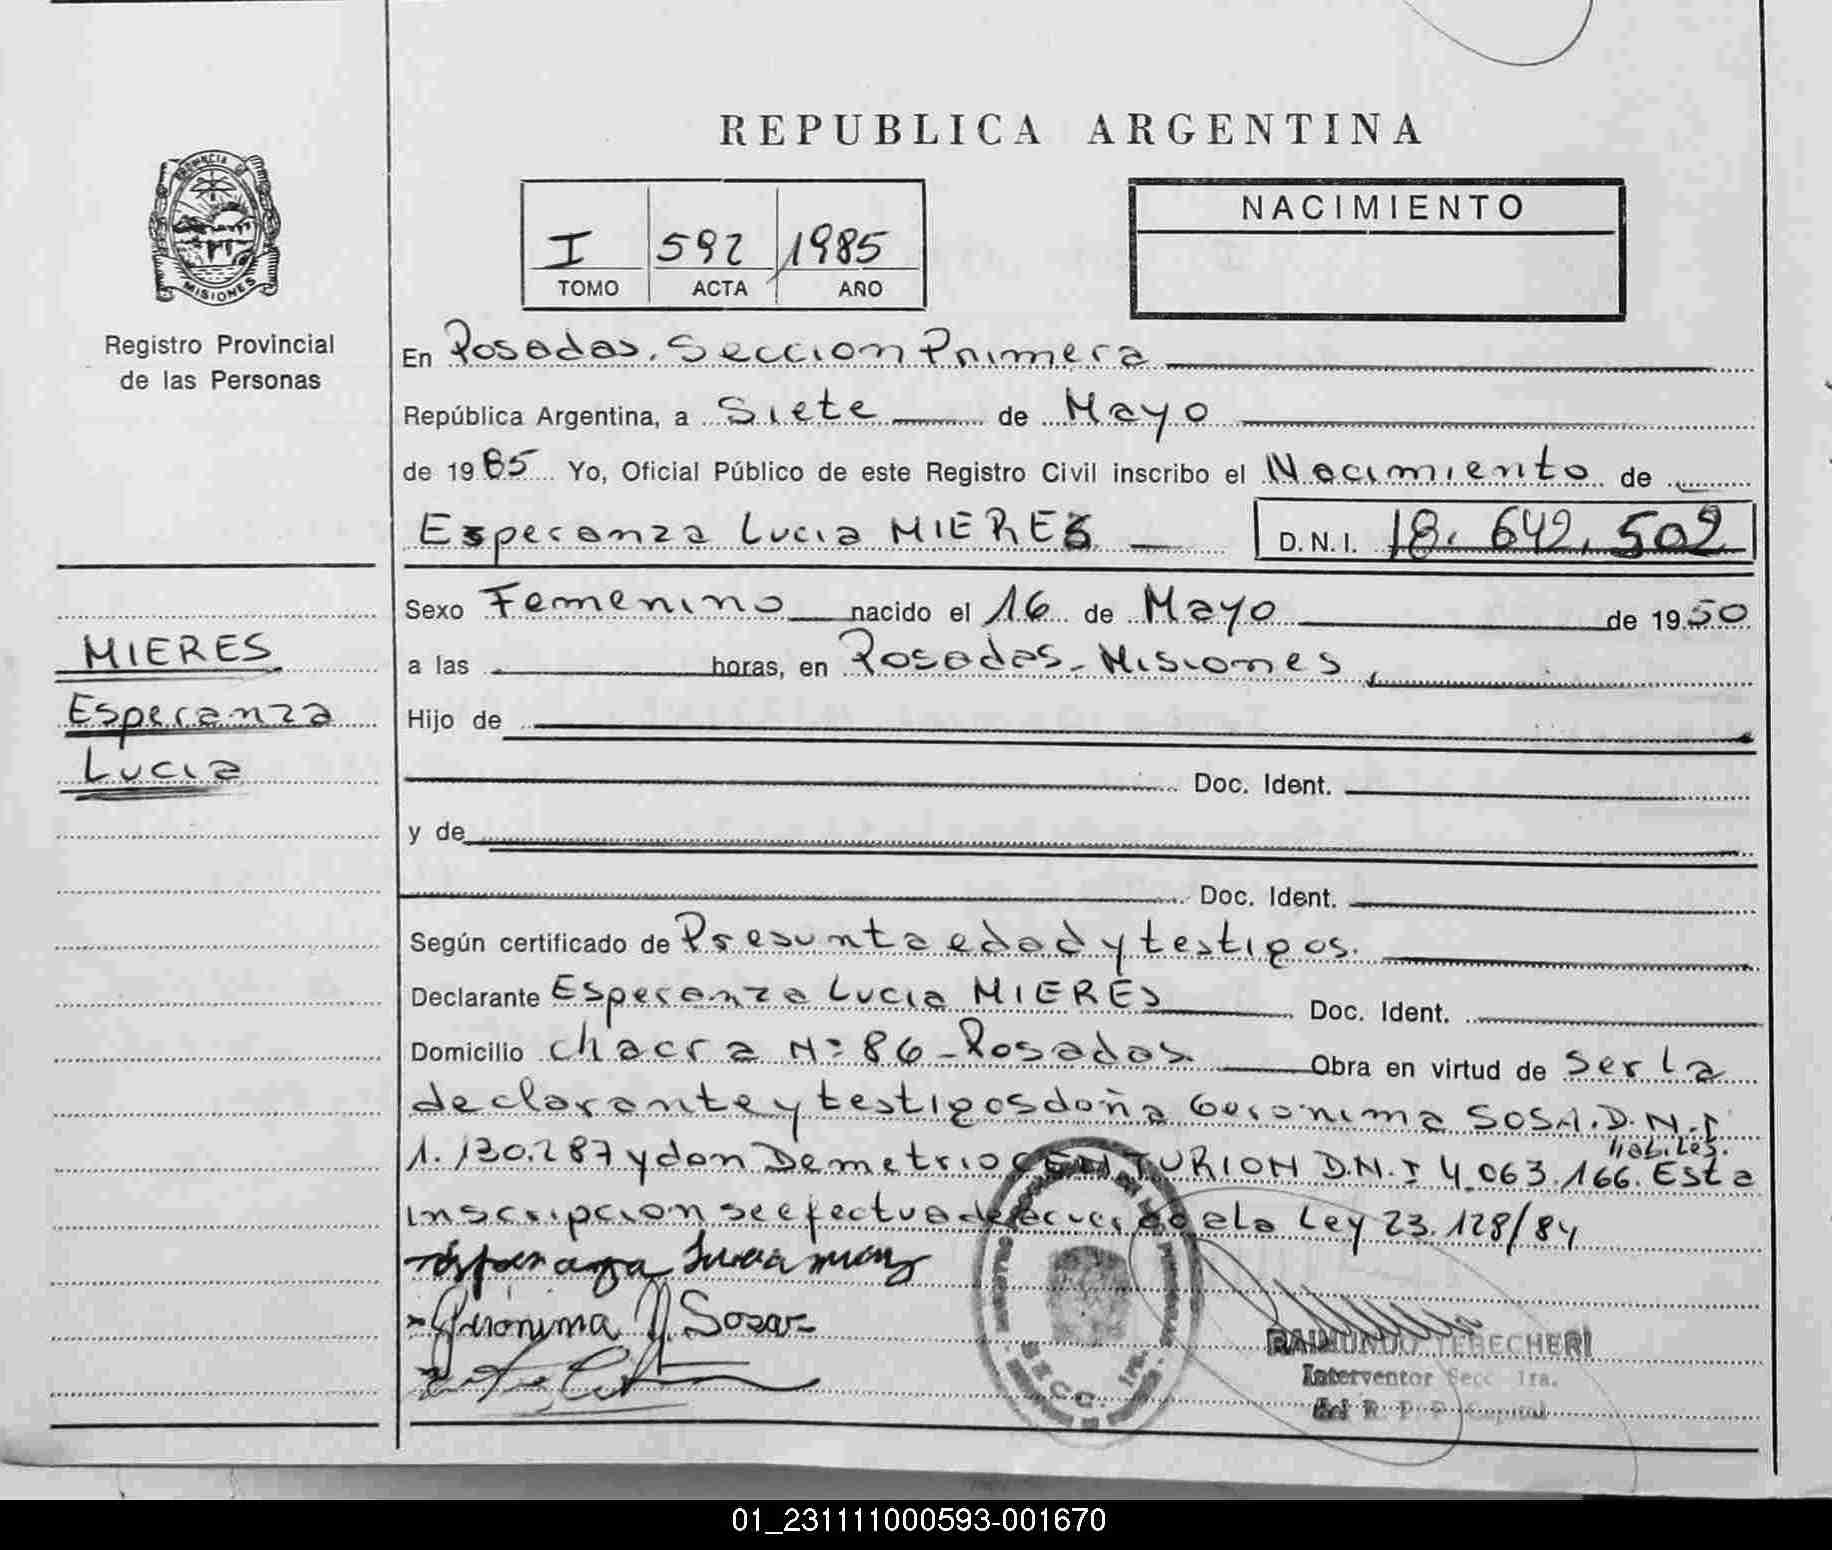 REPUBLICA ARGENTINA
PROVINCIA DE
MISIONES
Registro Provincial
de las Personas
I 592 1985
TOMO ACTA AÑO
NACIMIENTO
En Posadas. Seccion Primera
República Argentina, a Siete de Mayo
de 1985 Yo, Oficial Público de este Registro Civil inscribo el Nacimiento de
Esperanza Lucia MIERES
D.N.I. 18.642.502
MIERES
Esperanza
Lucia
Sexo Femenino nacido el 16 de Mayo de 1950
a las horas, en Posadas - Misiones
Hijo de
Doc. Ident.
y de
Doc. Ident.
Según certificado de Presunta edad y testigos.
Declarante Esperanza Lucia MIERES Doc. Ident.
Domicilio chacra Nº 86 - Posadas Obra en virtud de ser la
declarante y testigos doña Geronima SOSA. D.N.I
habiles.
1.130.287 y don Demetrio CENTURION D.N.I 4.063.166. Esta
inscripcion se efectua de acuerdo a la Ley 23.128/84
Esperanza Lucia
Gerónima Sosa
SECC. 1ra.
RAIMUNDO TERECHERI
Interventor Secc 1ra.
del R. P. P. Capital
01_231111000593-001670